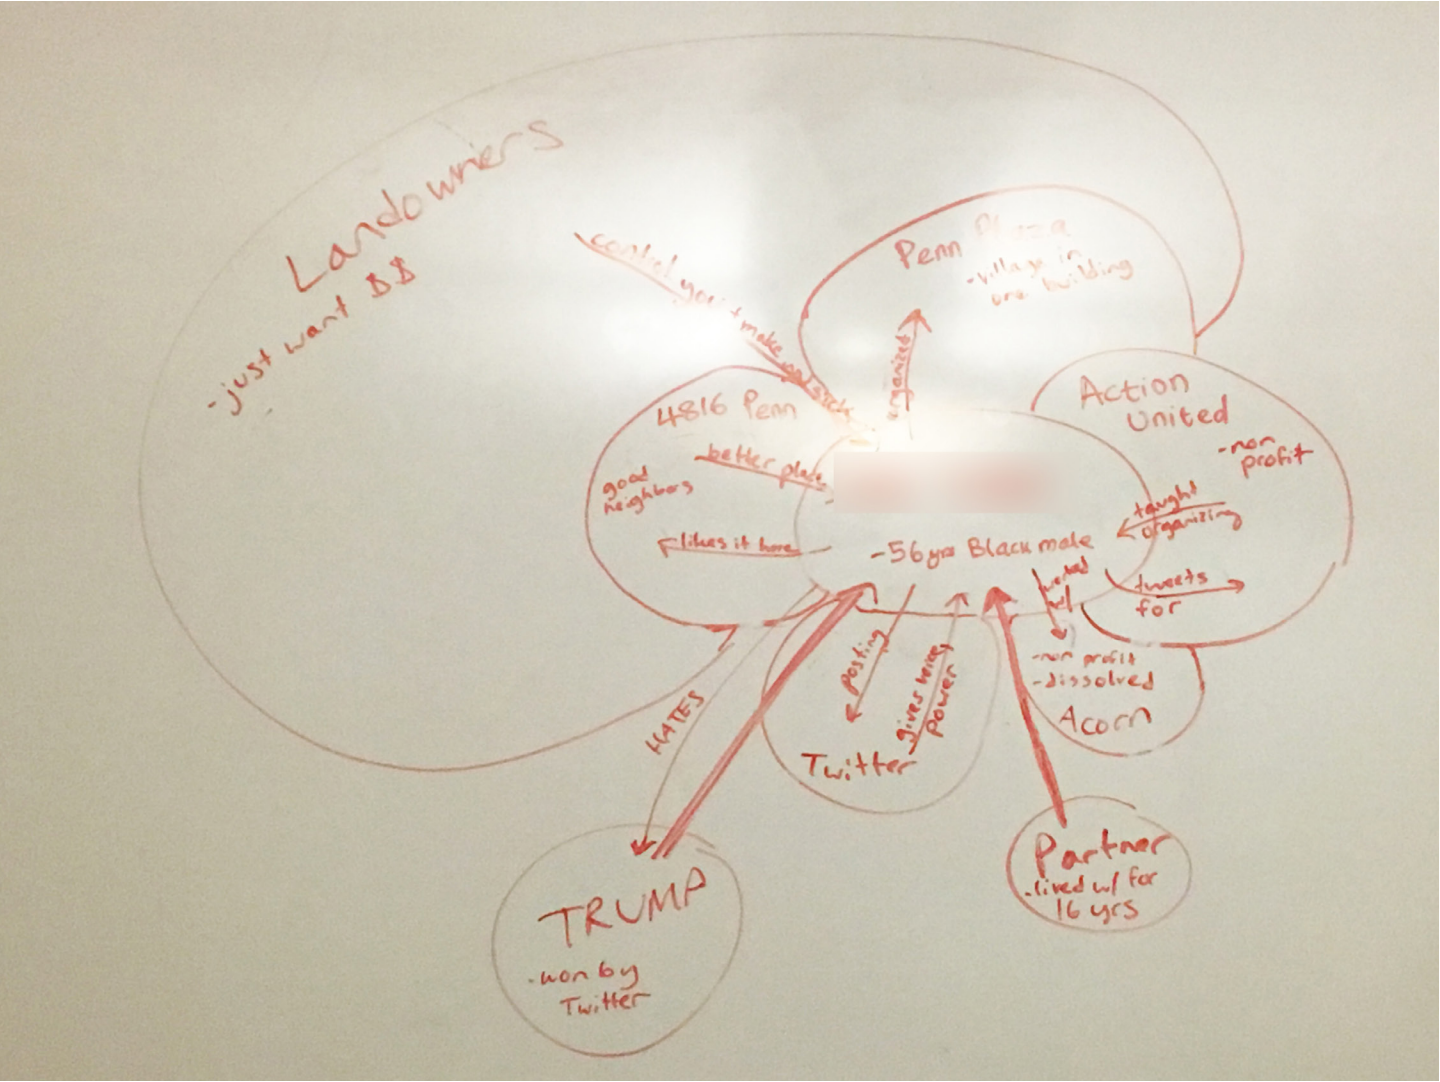 Landowners
-just want $$
control you + make you sick
Penn Plaza
-village in
one building
organized
4816 Penn
good
neighbors
better place
likes it here
Action
United
-non
profit
taught
organizing
tweets
for
-56 yrs Black male
worked
w/
-non profit
-dissolved
Acorn
posting
gives voice,
power
Twitter
HATES
TRUMP
-won by
Twitter
Partner
-lived w/ for
16 yrs